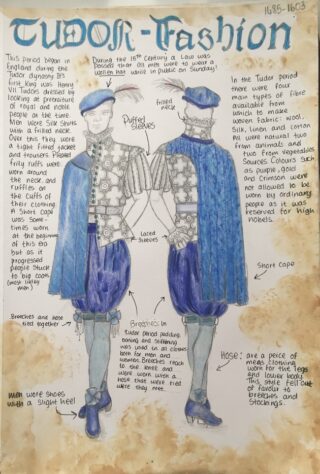 1485-1603
TUDOR-Fashion
This period began in
England during the
Tudor dynasty. It's
first king was Henry
VII Tudors dressed by
looking at portraiture
of royal and noble
people at the time.
Men wore silk shirts
with a frilled neck.
Over this they wore
a tight fitted jacket
and trousers. Pleated
frilly ruffs were
worn around
the neck and
ruffles on
the cuffs of
their clothing.
A Short cape
was some-
times worn
at the beginning
of this era
but as it
progressed
people stuck
to big coats
men)
During the 15th Century a Law was
passed that all men were to wear a
woolen hat while in public on Sunday!
Puffed
sleeves
frilled
neck
Laced
sleeves
In the Tudor period
there were four
main types of fibre
available from
which to make
woven fabric: wool,
silk, linen and cotton
All were natural two
from animals and
two from vegetables
Sources. Colours such
as purple, gold
and Crimson were
not allowed to be
worn by ordinary
people as it was
reserved for high
nobels.
Short Cape
Breeches and hose
tied together
Breeches: In
Tudor period padding
boning and stiffening
was used in all clothes
both for men and
women. Breeches reach
to the knee and
were worn with a
hose that were tied
were they met.
Hose: are a peice of
mens clothing
worn for the legs
and lower body.
This style fell out
of favour to
breeches and
stockings.
Men wore shoes
with a slight heel